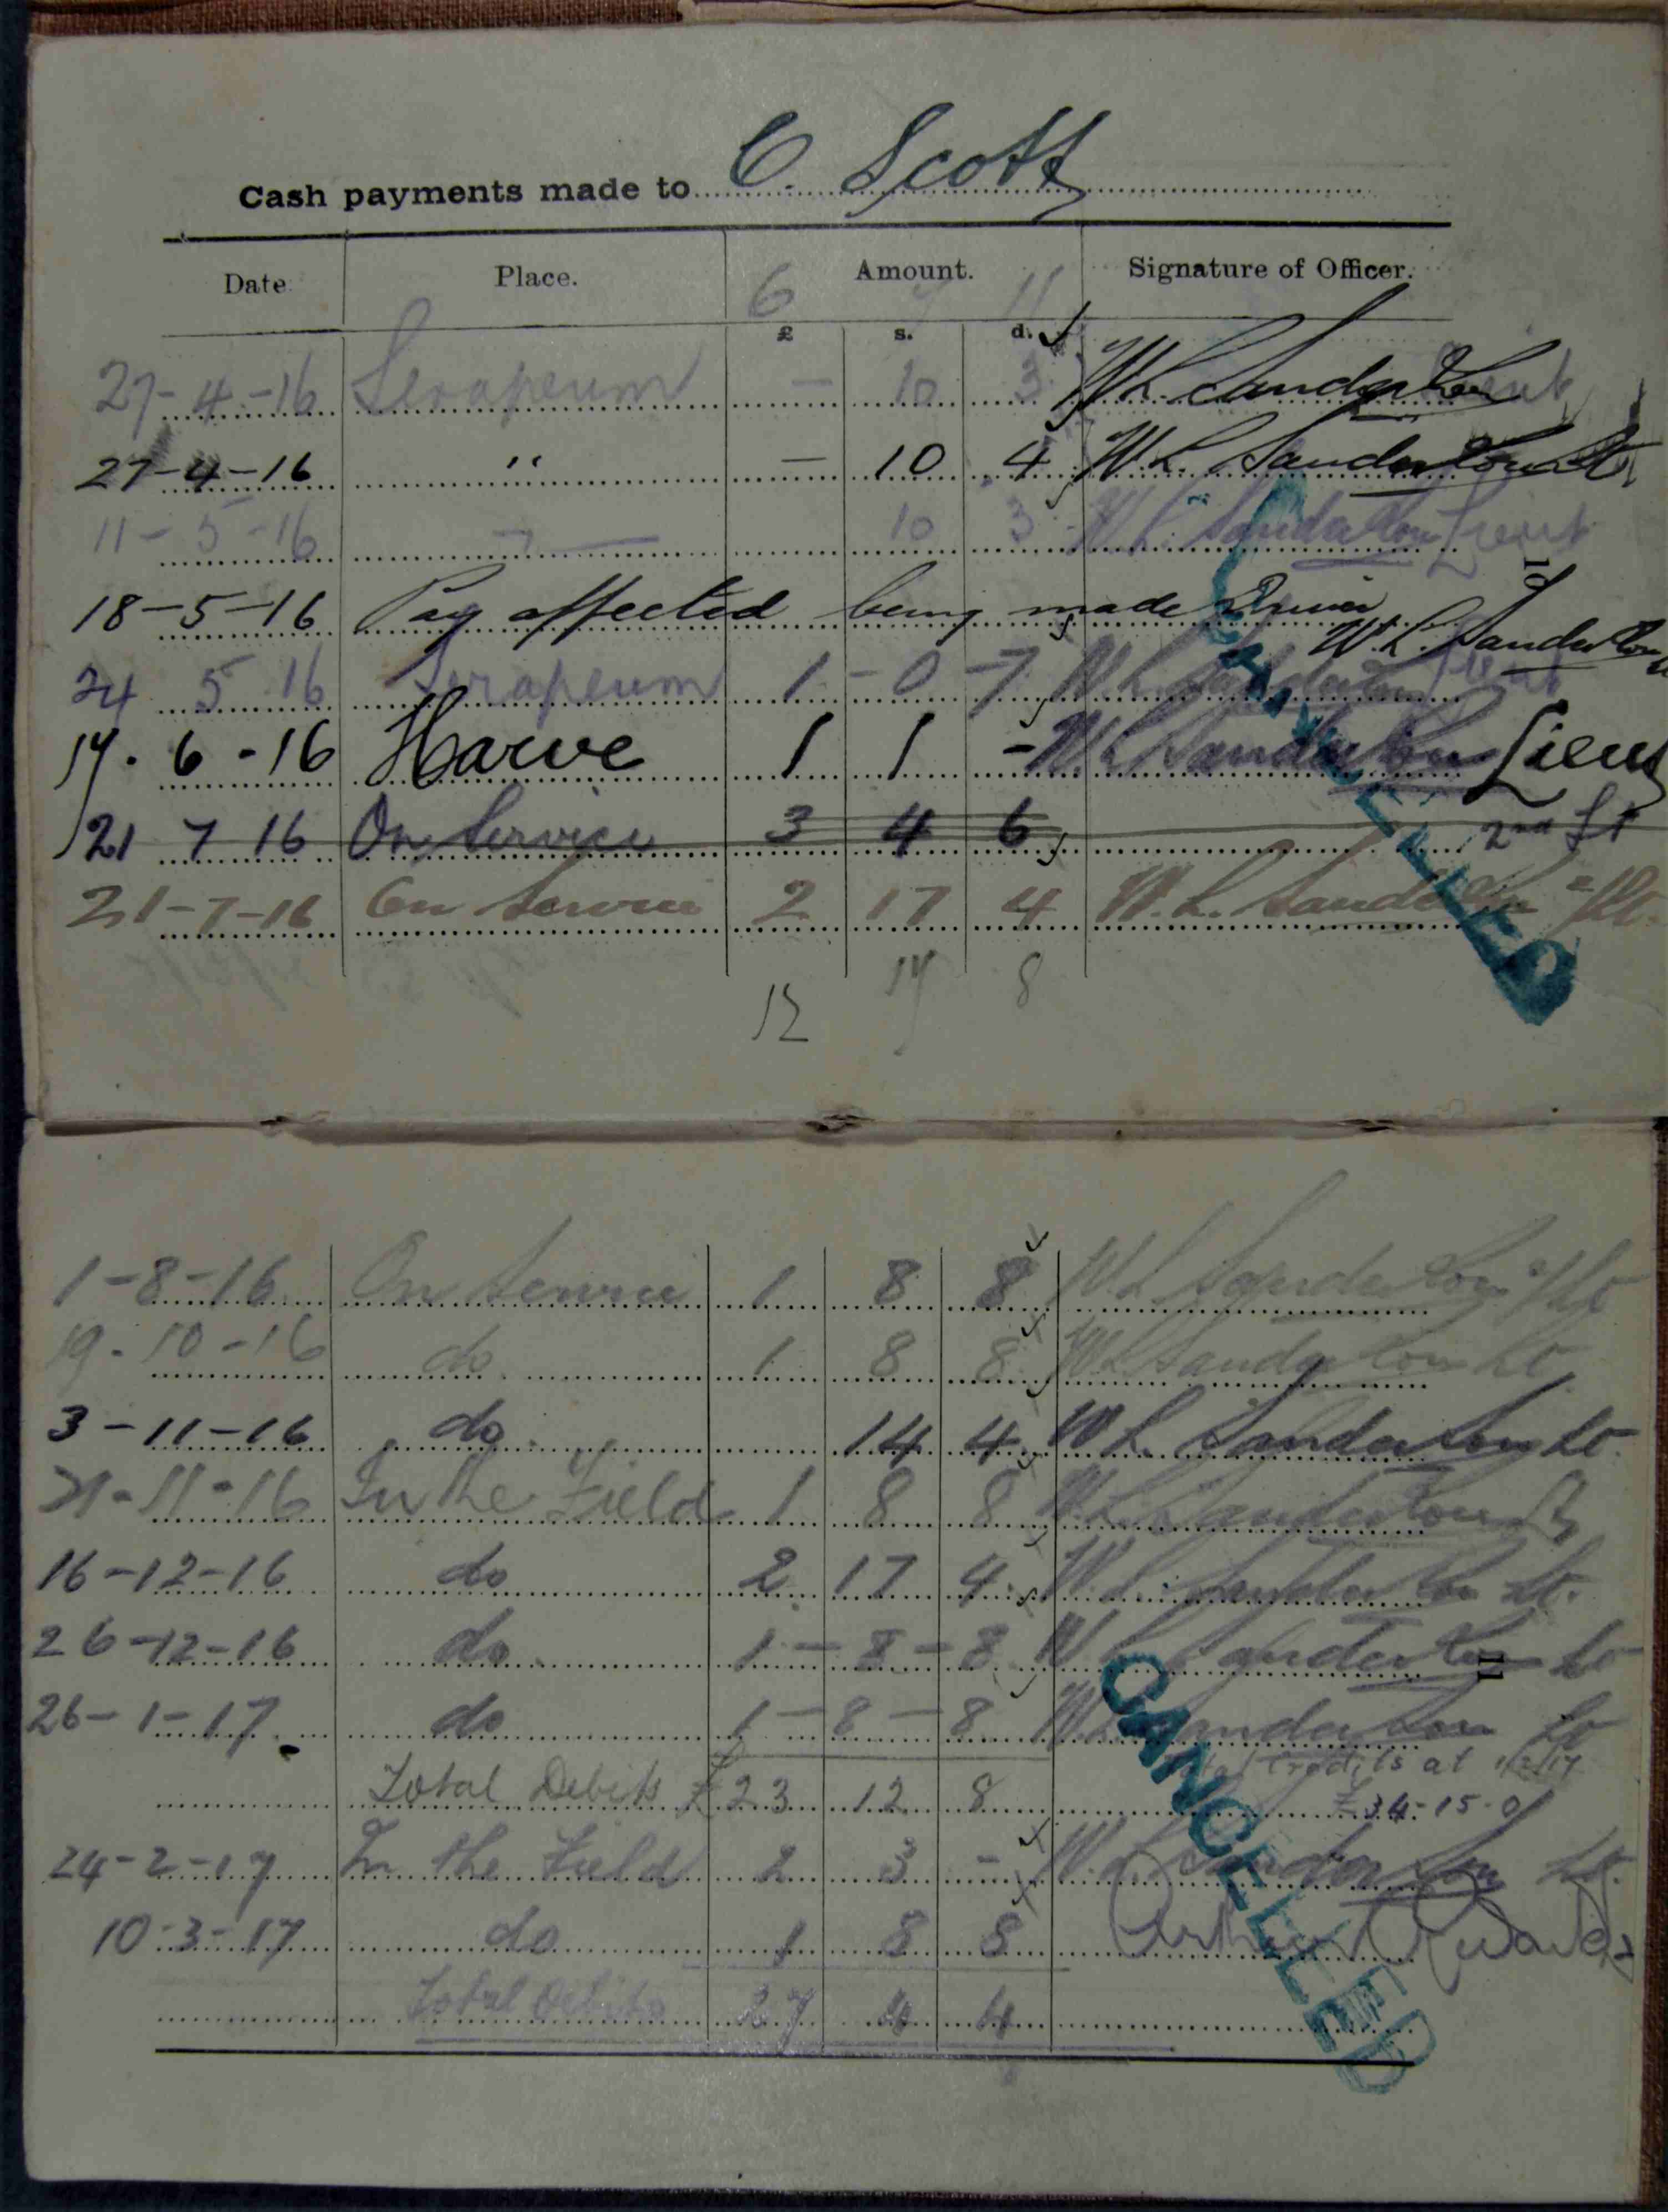 Cash payments made to C. Scott
Date Place. Amount. Signature of Officer.
6 7 11
£ s. d.
27-4-16 Serapeum - 10 3 W L Sanderson Lieut
27-4-16 " - 10 4 W L. Sanderson Lt
11-5-16 - " - 10 3 W L Sanderson Lieut
10
18-5-16 Pay affected being made Driver
W. L. Sanderson
24 5 16 Serapeum 1-0-7 W L Sanderson Lieut
17. 6-16 Harve 1 1 - W L Sanderson Lieut
21 7 16 On Service 3 4 6 2nd Lt
21-7-16 On Service 2 17 4 W. L. Sanderson 2/Lt.
12 14 8
CANCELLED
1-8-16 On Service 1 8 8 W L Sanderson 2/Lt
19-10-16 do 1 8 8 W L Sanderson Lt
3-11-16 do 14 4 W L. Sanderson Lt.
21-11-16 In the Field 1 8 8 W. L. Sanderson Lt
16-12-16 do 2 17 4 W. L. Sanderson Lt.
26-12-16 do 1-8-8 W L Sanderson Lt
11
26-1-17 do 1-8-8 W. L. Sanderson Lt
Total Credits at 1/2/17
Total Debits £ 23 12 8 £34-15-0
24-2-17 In the Field 2 3 - W. L. Sanderson Lt.
10-3-17 do 1 8 8 Arthur
Total Debits 27 4 4
CANCELLED